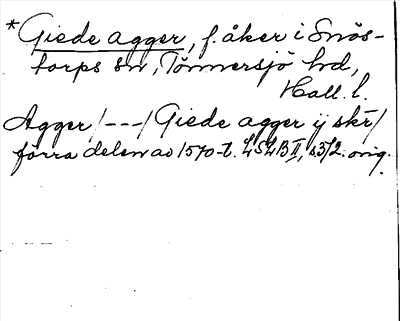 *Giede agger, f. åker i Snös-
torps sn, Tönnersjö hd,
Hall. l.
Agger /---/ Giede agger ij skr/
förra delen av 1570-t. LSLB II, s. 372. orig.